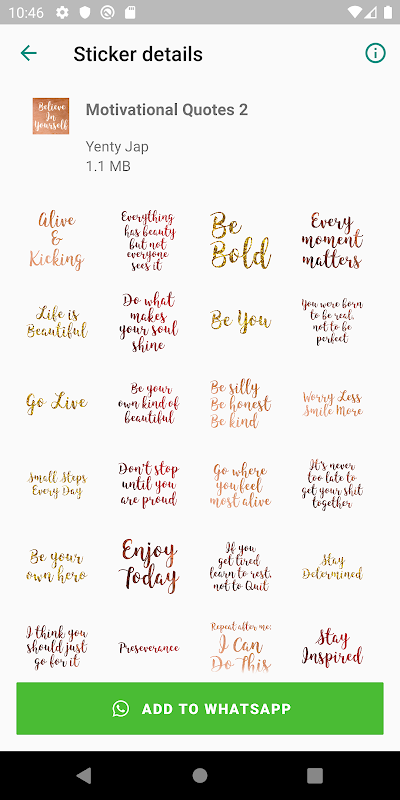 10:46
Sticker details
Believe
In
Yourself
Motivational Quotes 2
Yenty Jap
1.1 MB
Alive
&
Kicking
Everything
has beauty
but not
everyone
sees it
Be
Bold
Every
moment
matters
Life is
Beautiful
Do what
makes
your soul
shine
Be You
You were born
to be real,
not to be
perfect
Go Live
Be your
own kind of
beautiful
Be silly
Be honest
Be kind
Worry Less
Smile More
Small Steps
Every Day
Don't stop
until you
are proud
Go where
you feel
most alive
It's never
too late to
get your shit
together
Be your
own hero
Enjoy
Today
If you
get tired
learn to rest,
not to Quit
Stay
Determined
I think you
should just
go for it
Preseverance
Repeat after me:
I Can
Do This
Stay
Inspired
ADD TO WHATSAPP